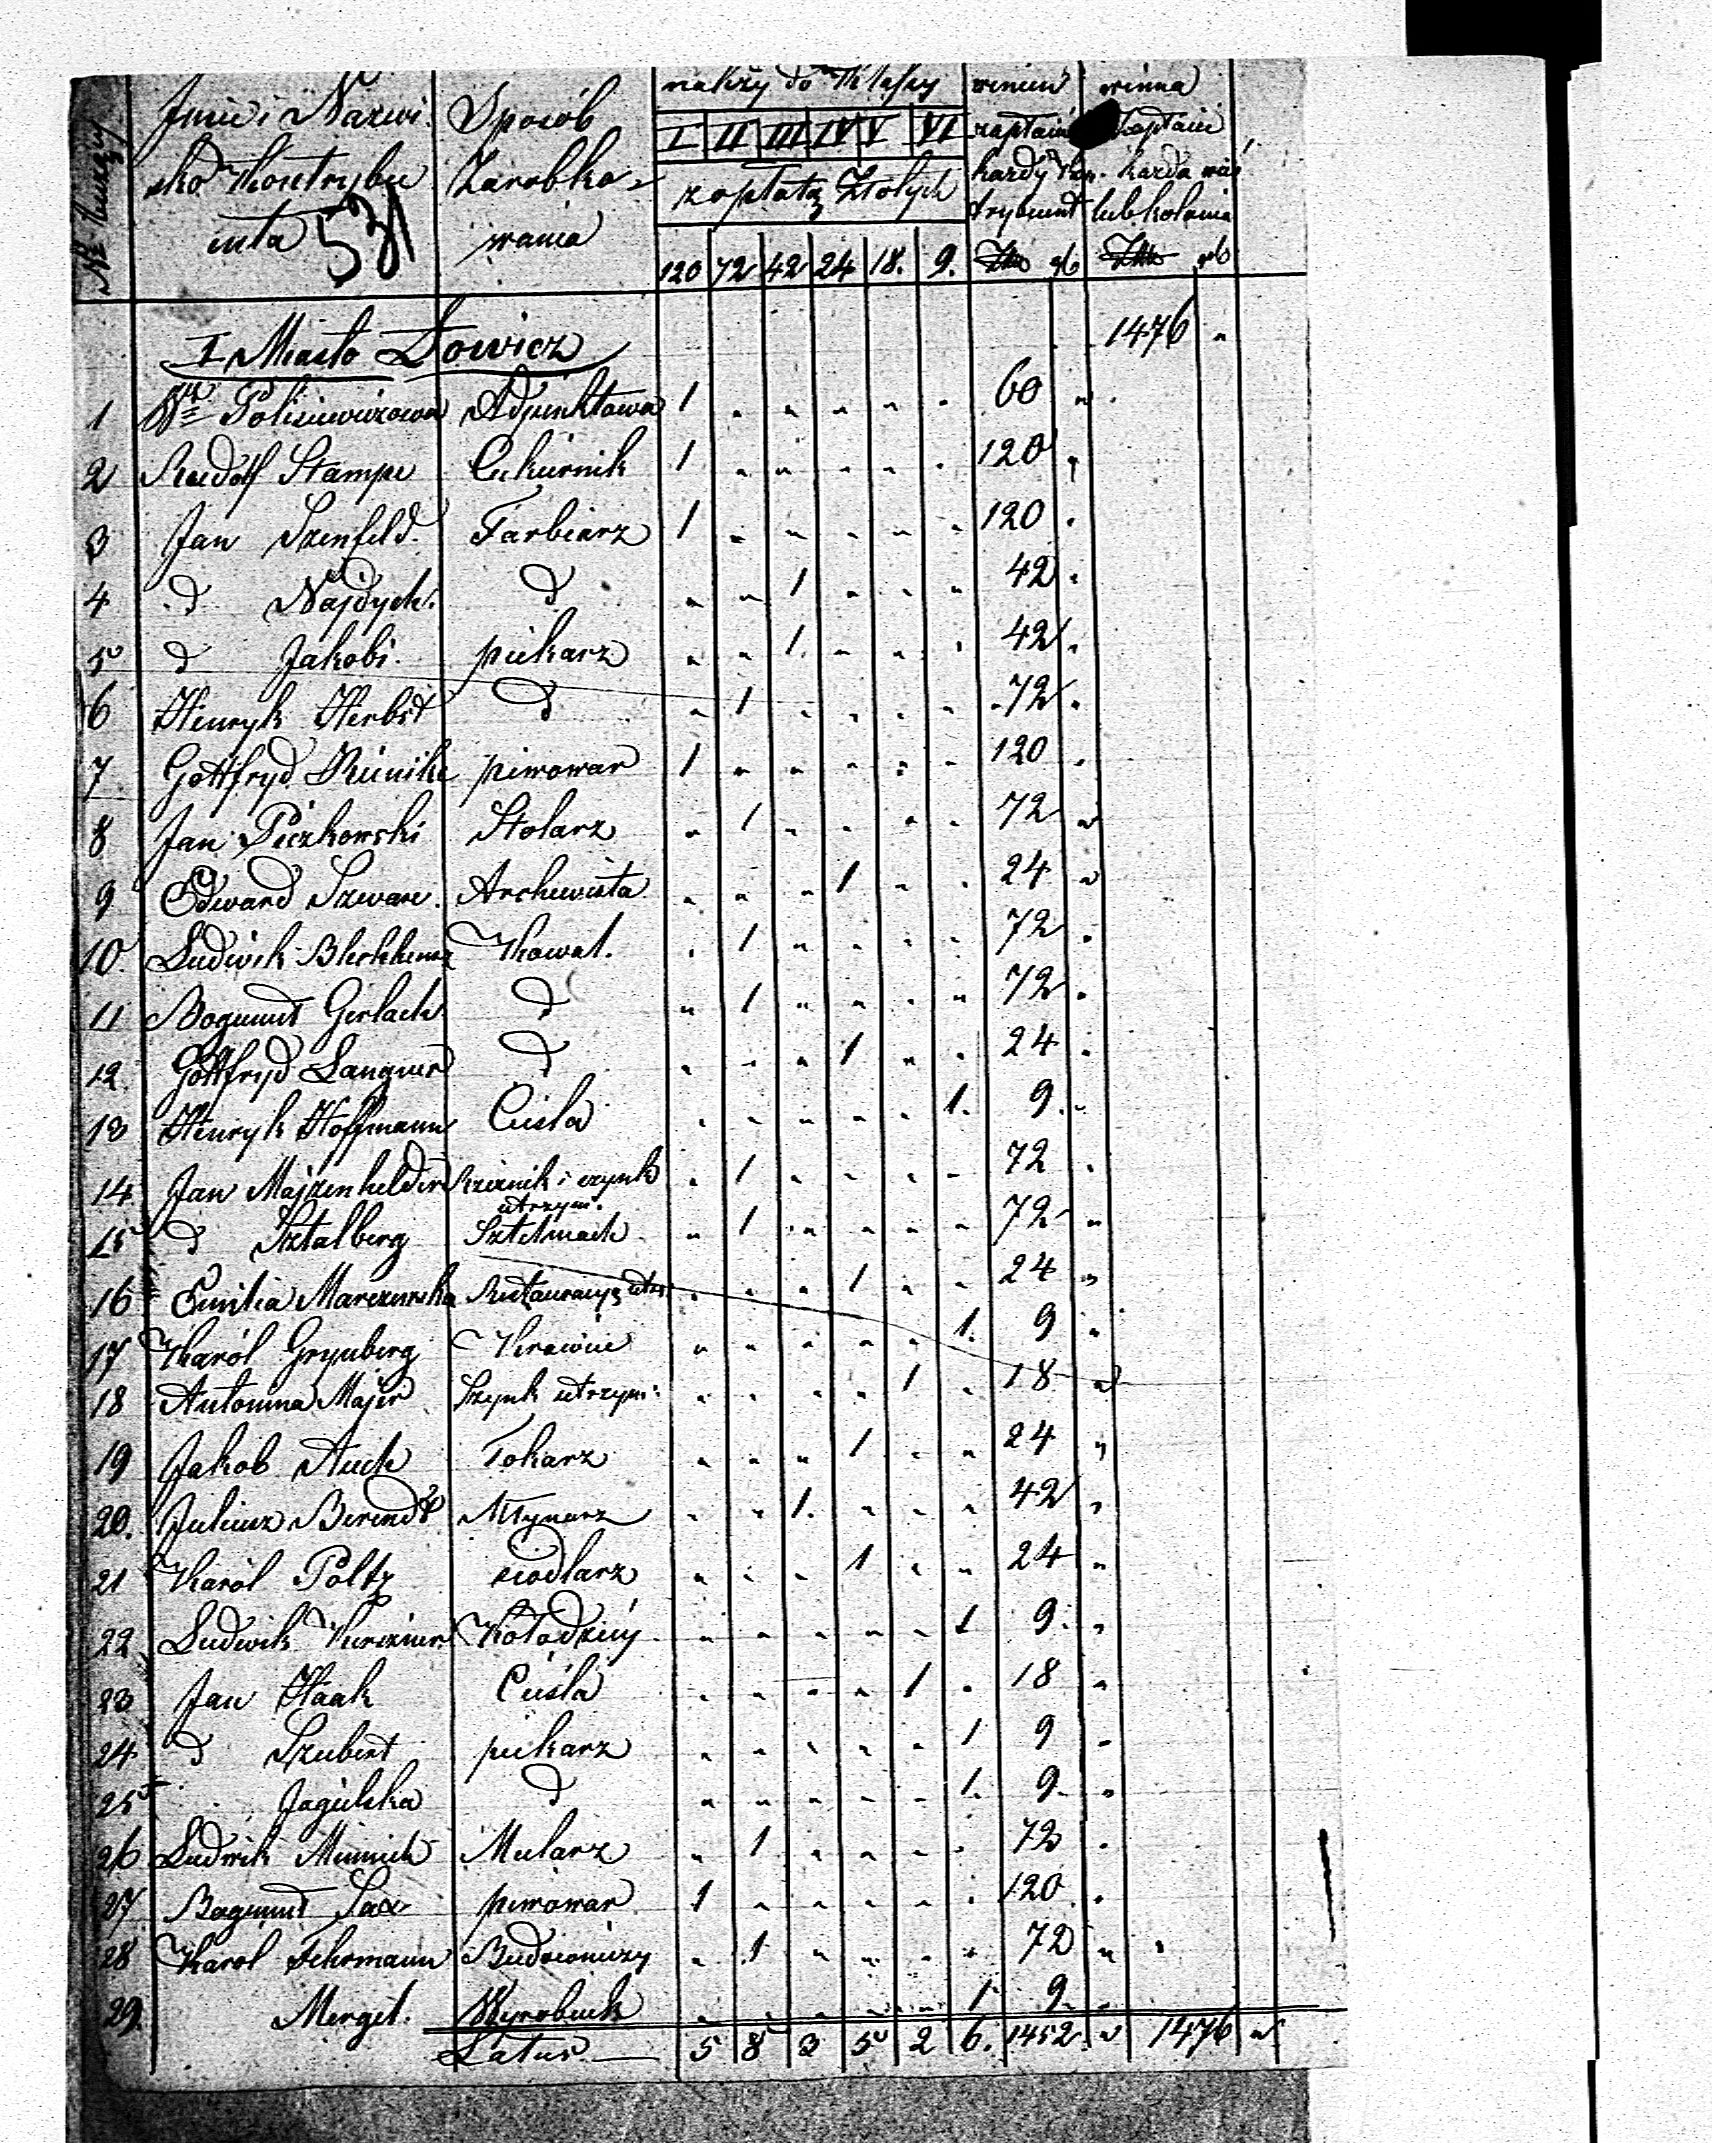 № bieżący
Imie i Nazwi- Sposób należy do klassy winien winna
sko Kontrybu Zarobko- I II III IV V VI zapłacić zapłacić
enta 531 wania zapłatą Złotych każdy kon- każda wieś
trybuent lub kolonia
120 72 42 24 18. 9. Złp gr Złp gr
I Miasto Łowicz 1476 "
1 Wa Adjunktowa 1 " " " " " 60 "
2 Rudolf Stampe Cukiernik 1 " " " " " 120 "
3 Jan Szenfeld Farbiarz 1 " " " " " 120 "
4 d Najdych. d " " 1 " " " 42 "
5 d Jakobi. piekarz " " 1. " " " 42 "
6 Henryk Herbst d " 1 " " " " 72 "
7 Gottfryd Reinike piwowar 1 " " " " " 120 "
8 Jan Pieczkowski Stolarz " 1 " " " " 72 "
9 Edward Szwarc. Archiwista " " " 1 " " 24 "
10. Ludwik Kowal. " 1 " " " " 72 "
11 Bogumił Gerlach d " 1 " " " " 72 "
12. Gottfryd Langner d " " " 1 " " 24 "
13 Henryk Hoffmann Cieśla " " " " " 1. 9. "
14 Jan Majzenhelder Rzeźnik i szynk utrzym. " 1 " " " " 72 "
15 d Sztalberg Sztelmach " 1 " " " " 72 "
16 Emilia Marczewska Restauracyę utrz. " " " 1 " " 24 "
17 Karól Grynberg Krawiec " " " " " 1. 9 "
18 Antonina Majer Szynk utrzym: " " " " 1 " 18 "
19 Jakob Auch Tokarz " " " 1 " " 24 "
20. Juliusz Berendt Młynarz " " 1. " " " 42 "
21 Karól Poltz siodlarz " " " 1 " " 24 "
22 Ludwik Kurcziner Kołodziéj " " " " " 1 9. "
23 Jan Haak Cieśla " " " " 1 " 18 "
24 d Szubert piekarz " " " " " 1 9 "
25 Jagielska d " " " " " 1. 9. "
26 Ludwik Minnich Mularz " 1 " " " " 72 "
27 Bogumił Sax piwowar 1 " " " " " 120 "
28 Karol Fehrmann Budowniczy " 1 " " " " 72 "
29. Mergel. Wyrobnik " " " " " 1 9 "
Latus. 5 8 3 5 2 6. 1452 " 1476 "